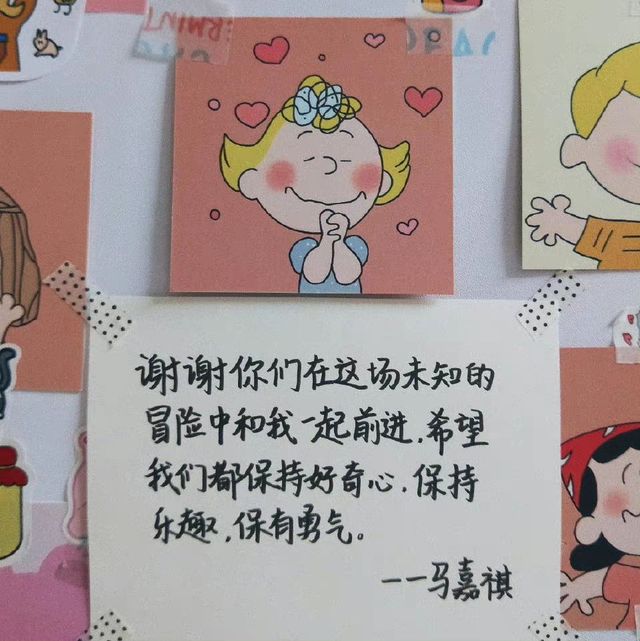 谢谢你们在这场未知的
冒险中和我一起前进，希望
我们都保持好奇心，保持
乐趣，保有勇气。
——马嘉祺